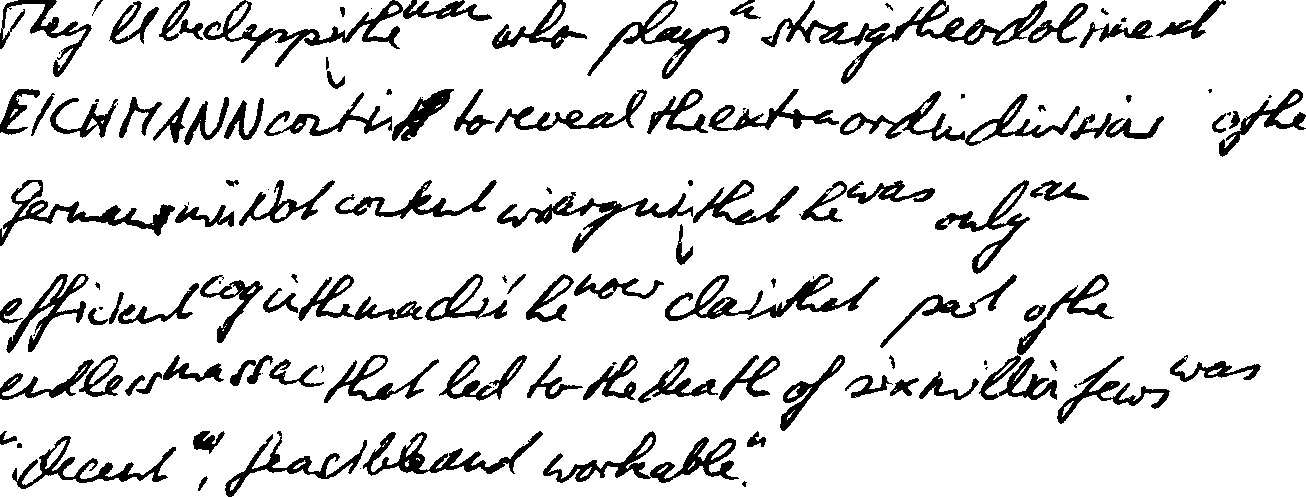 They'll be depping the man who plays a straight
EICHMANN continues to reveal the extraordin divisions of the
German mind Not content with arguing that he was only an
efficient cog in the machine he now claims that part of the
endless massacre that led to the death of six million Jews was
"decent", feasible and workable".